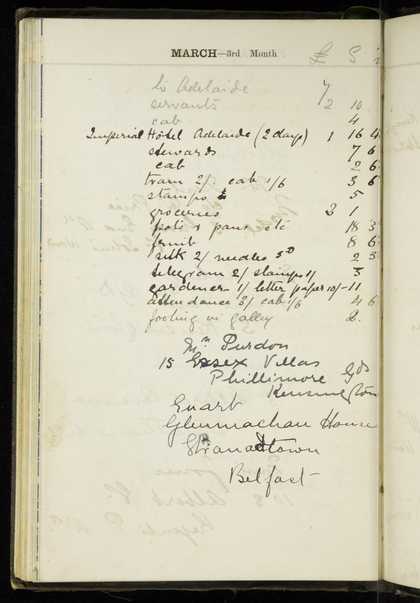 MARCH—3rd Month
£ S d
to Adelaide 7
servants 2 10
cab 4
Imperial Hotel Adelaide (2 days) 1 16 4
stewards 7 6
cab 2 6
tram 2/ cab 1/6 3 6
stamps 5
groceries 2 1
pots & pans etc 18 3
fruit 8 6
silk 2/ needles 3D 2 3
telegram 2/ stamps 1/ 3
gardener 1/ letter paper 10/- 11
attendance 3/ cab 1/6 4 6
footing in galley 2.
Mrs Purdon
15 Essex Villas
Phillimore Gds
Kensington
Ewart
Glenmachan House
Strandtown
Belfast